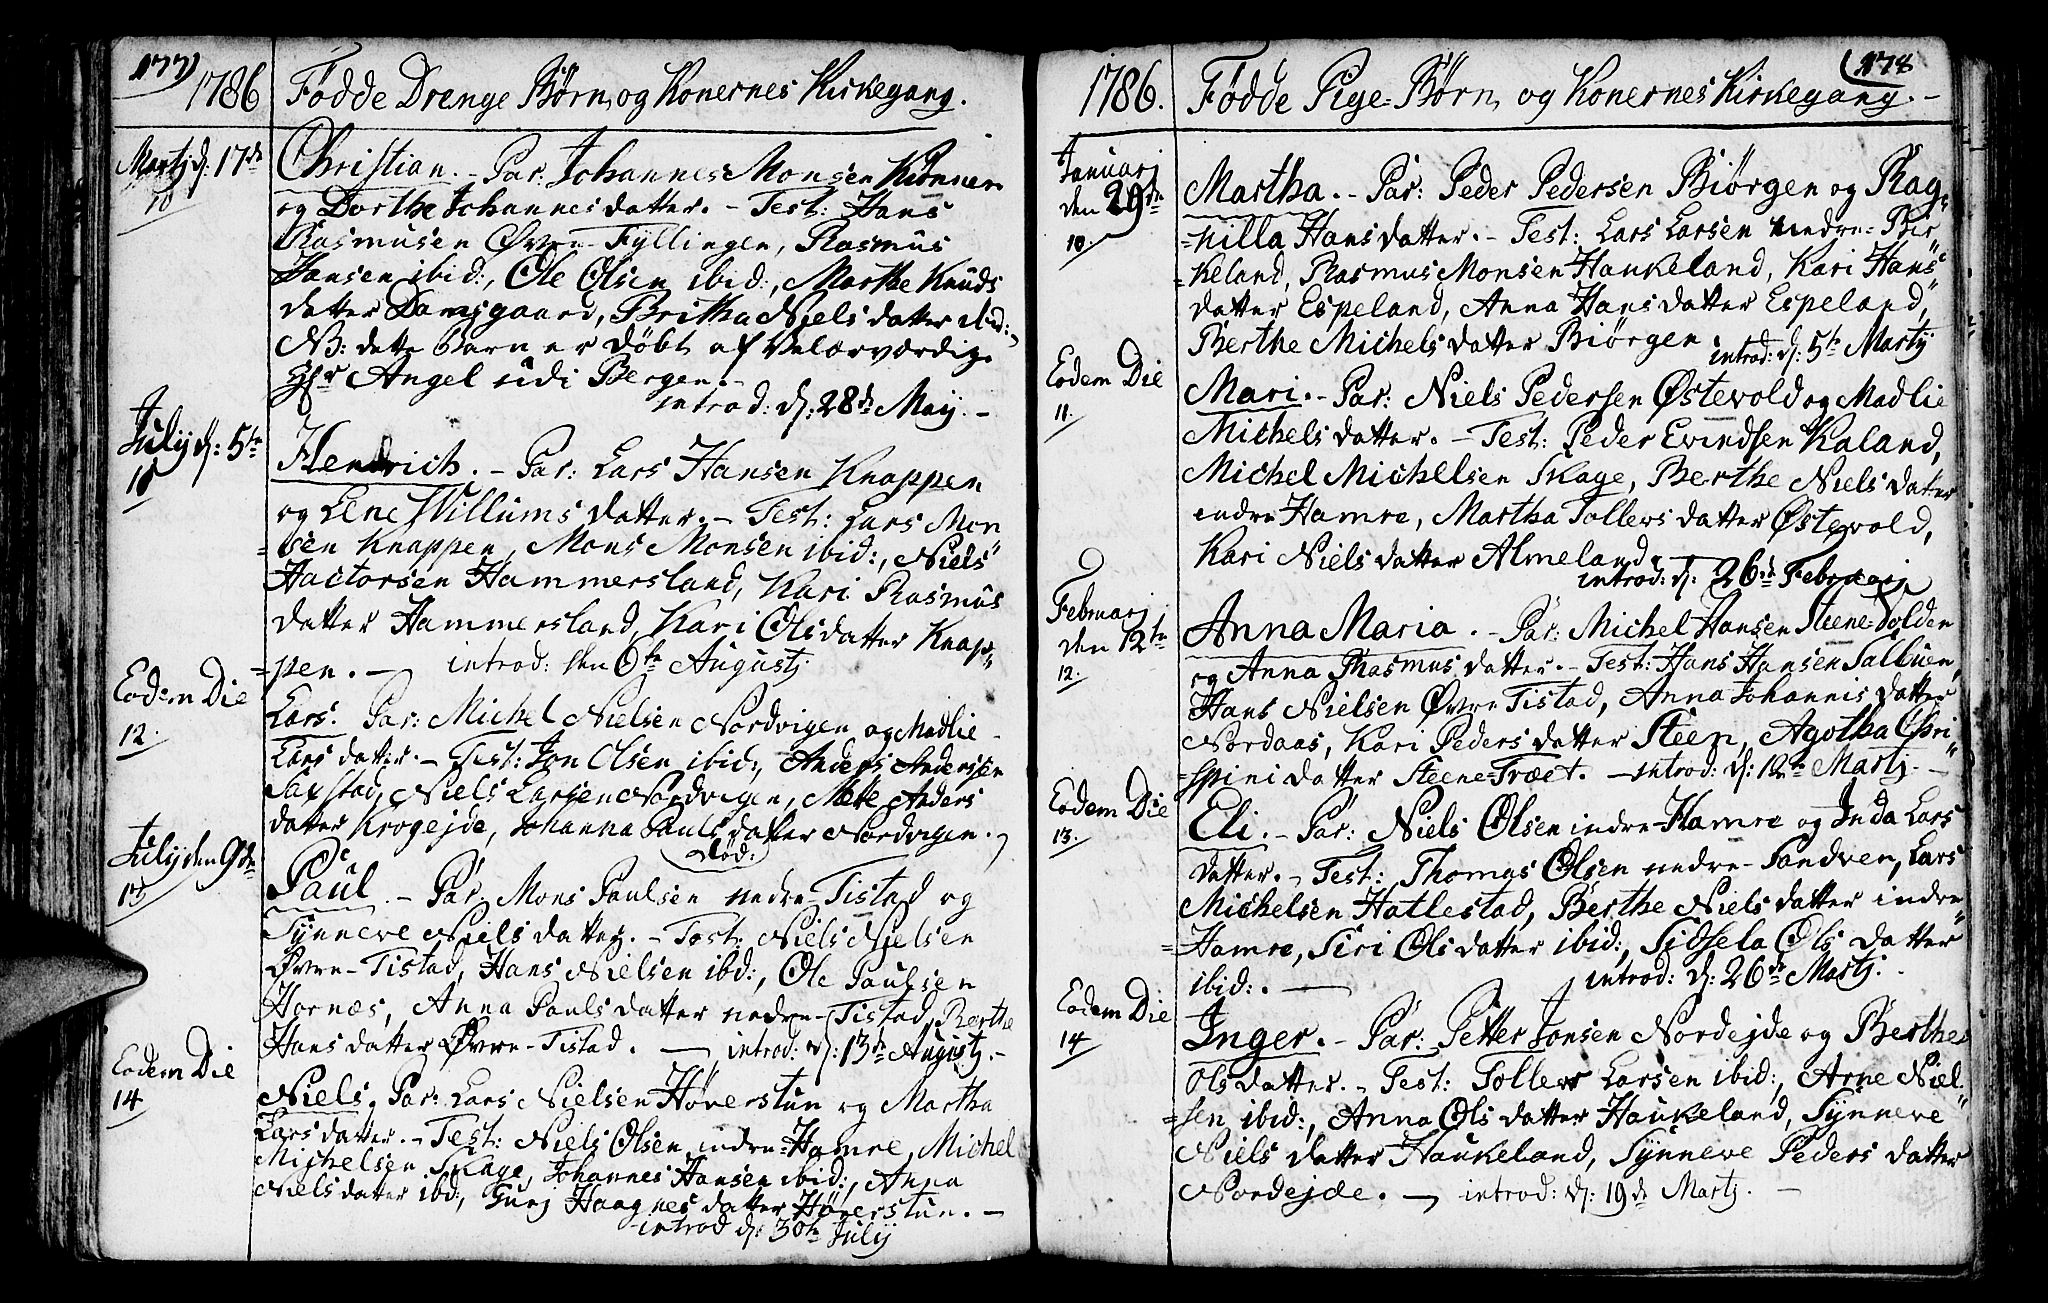 177)
1786 Fødde Drenge Børn, og Konernes Kirkegang.
Martj d: 17de Christian. - Par: Johannes Monsen
10
og Dorthe Johannesdatter. - Test: Hans
Rasmusen Øvre-Fyllingen, Rasmus
Hansen ibid:, Ole Olsen ibid:, Marthe Knuds
datter Damsgaard, Britha Niels datter ibid:
NB: dette Barn er døbt af Velærværdige
Hr Angel udi Bergen. -
introd: d: 28de Maij. -
Julij d: 5te Hendrich. - Par: Lars Hansen Knappen
11
og Lene Willums datter. - Test: Lars Mon
=sen Knappen, Mons Monsen ibid:, Niels
Hactorsen Hammersland, Kari Rasmus
datter Hammersland, Kari Olsdatter Knap=
=pen. - introd: den 6te Augustj.
Eodem Die Lars. Par: Michel Nielsen Nordvigen og Madlie
12.
Lars datter. - Test: Jon Olsen ibid:, Anders Anderssen
Saxstad, Niels Larsen Nordvigen, Mette Anders
datter Krogejde, Johanna Pauls datter Nordvigen.
død:
Julij den 9de Paul. - Par: Mons Paulsen nedre-Tistad og
13
Synneve Niels datter. - Test: Niels Nielsen
Øvre-Tistad, Hans Nielsen ibd:, Ole Paulsen
Hornæs, Anna Pauls datter nedre-Tistad, Berthe
Hans datter Øvre-Tistad. - introd: d: 13de Augustj. -
Eodem Die Niels. Par: Lars Nielsen Høverstun og Martha
14
Lars datter. - Test: Niels Olsen indre-Hamre, Michel
Michelsen Skage, Johannes Hansen ibid:, Anna
Niels datter ibd:, Gurj Haagnes datter Høverstun. -
introd d: 30te Julij
178
1786. Fødde Pige-Børn, og Konernes Kirkegang. -
Januarj
den 29de Martha. - Par: Peder Pedersen Biørgen og Rag=
10.
=nilla Hans datter. - Test: Lars Larsen nedre-Bir=
=keland, Rasmus Monsen Haukeland, Kari Hans=
datter Espeland, Anna Hans datter Espeland,
Berthe Michels datter Biørgen.
introd: d: 5te Martj
Eodem Die Mari. - Par: Niels Pedersen Østevold og Madlie
11.
Michels datter. - Test: Peder Evindsen Kaland,
Michel Michelsen Skage, Berthe Niels datter
indre Hamre, Martha Tollevs datter Østevold,
Kari Niels datter Almeland.
introd: d: 26de Februarj
Februarj
den 12te Anna Maria. - Par: Michel Hansen Steene-Volden
12.
og Anna Rasmus datter. - Test: Hans Hansen Salbuen,
Hans Nielsen Øvre Tistad, Anna Johannis datter
Nordaas, Kari Peders datter Steen, Agotha Chri=
=spini datter Steene-Træet. - introd: d: 12te Martj. -
Eodem Die Eli. - Par: Niels Olsen indre-Hamre og Inda Lars
13.
datter. - Test: Thomas Olsen nedre-Sandven, Lars
Michelsen Hatlestad, Berthe Niels datter indre=
=Hamre, Siri Ols datter ibid:, Sidsela Ols datter
ibid:. - introd: d: 26de Martj. -
Eodem Die Inger. - Par: Petter Jonsen Nordejde og Berthe
14
Ols datter. - Test: Tollev Larsen ibid:, Arne Niel=
=sen ibid:, Anna Ols datter Haukeland, Synneve
Niels datter Haukeland, Synneve Peders datter
Nordejde. - introd: d: 19de Martj. -